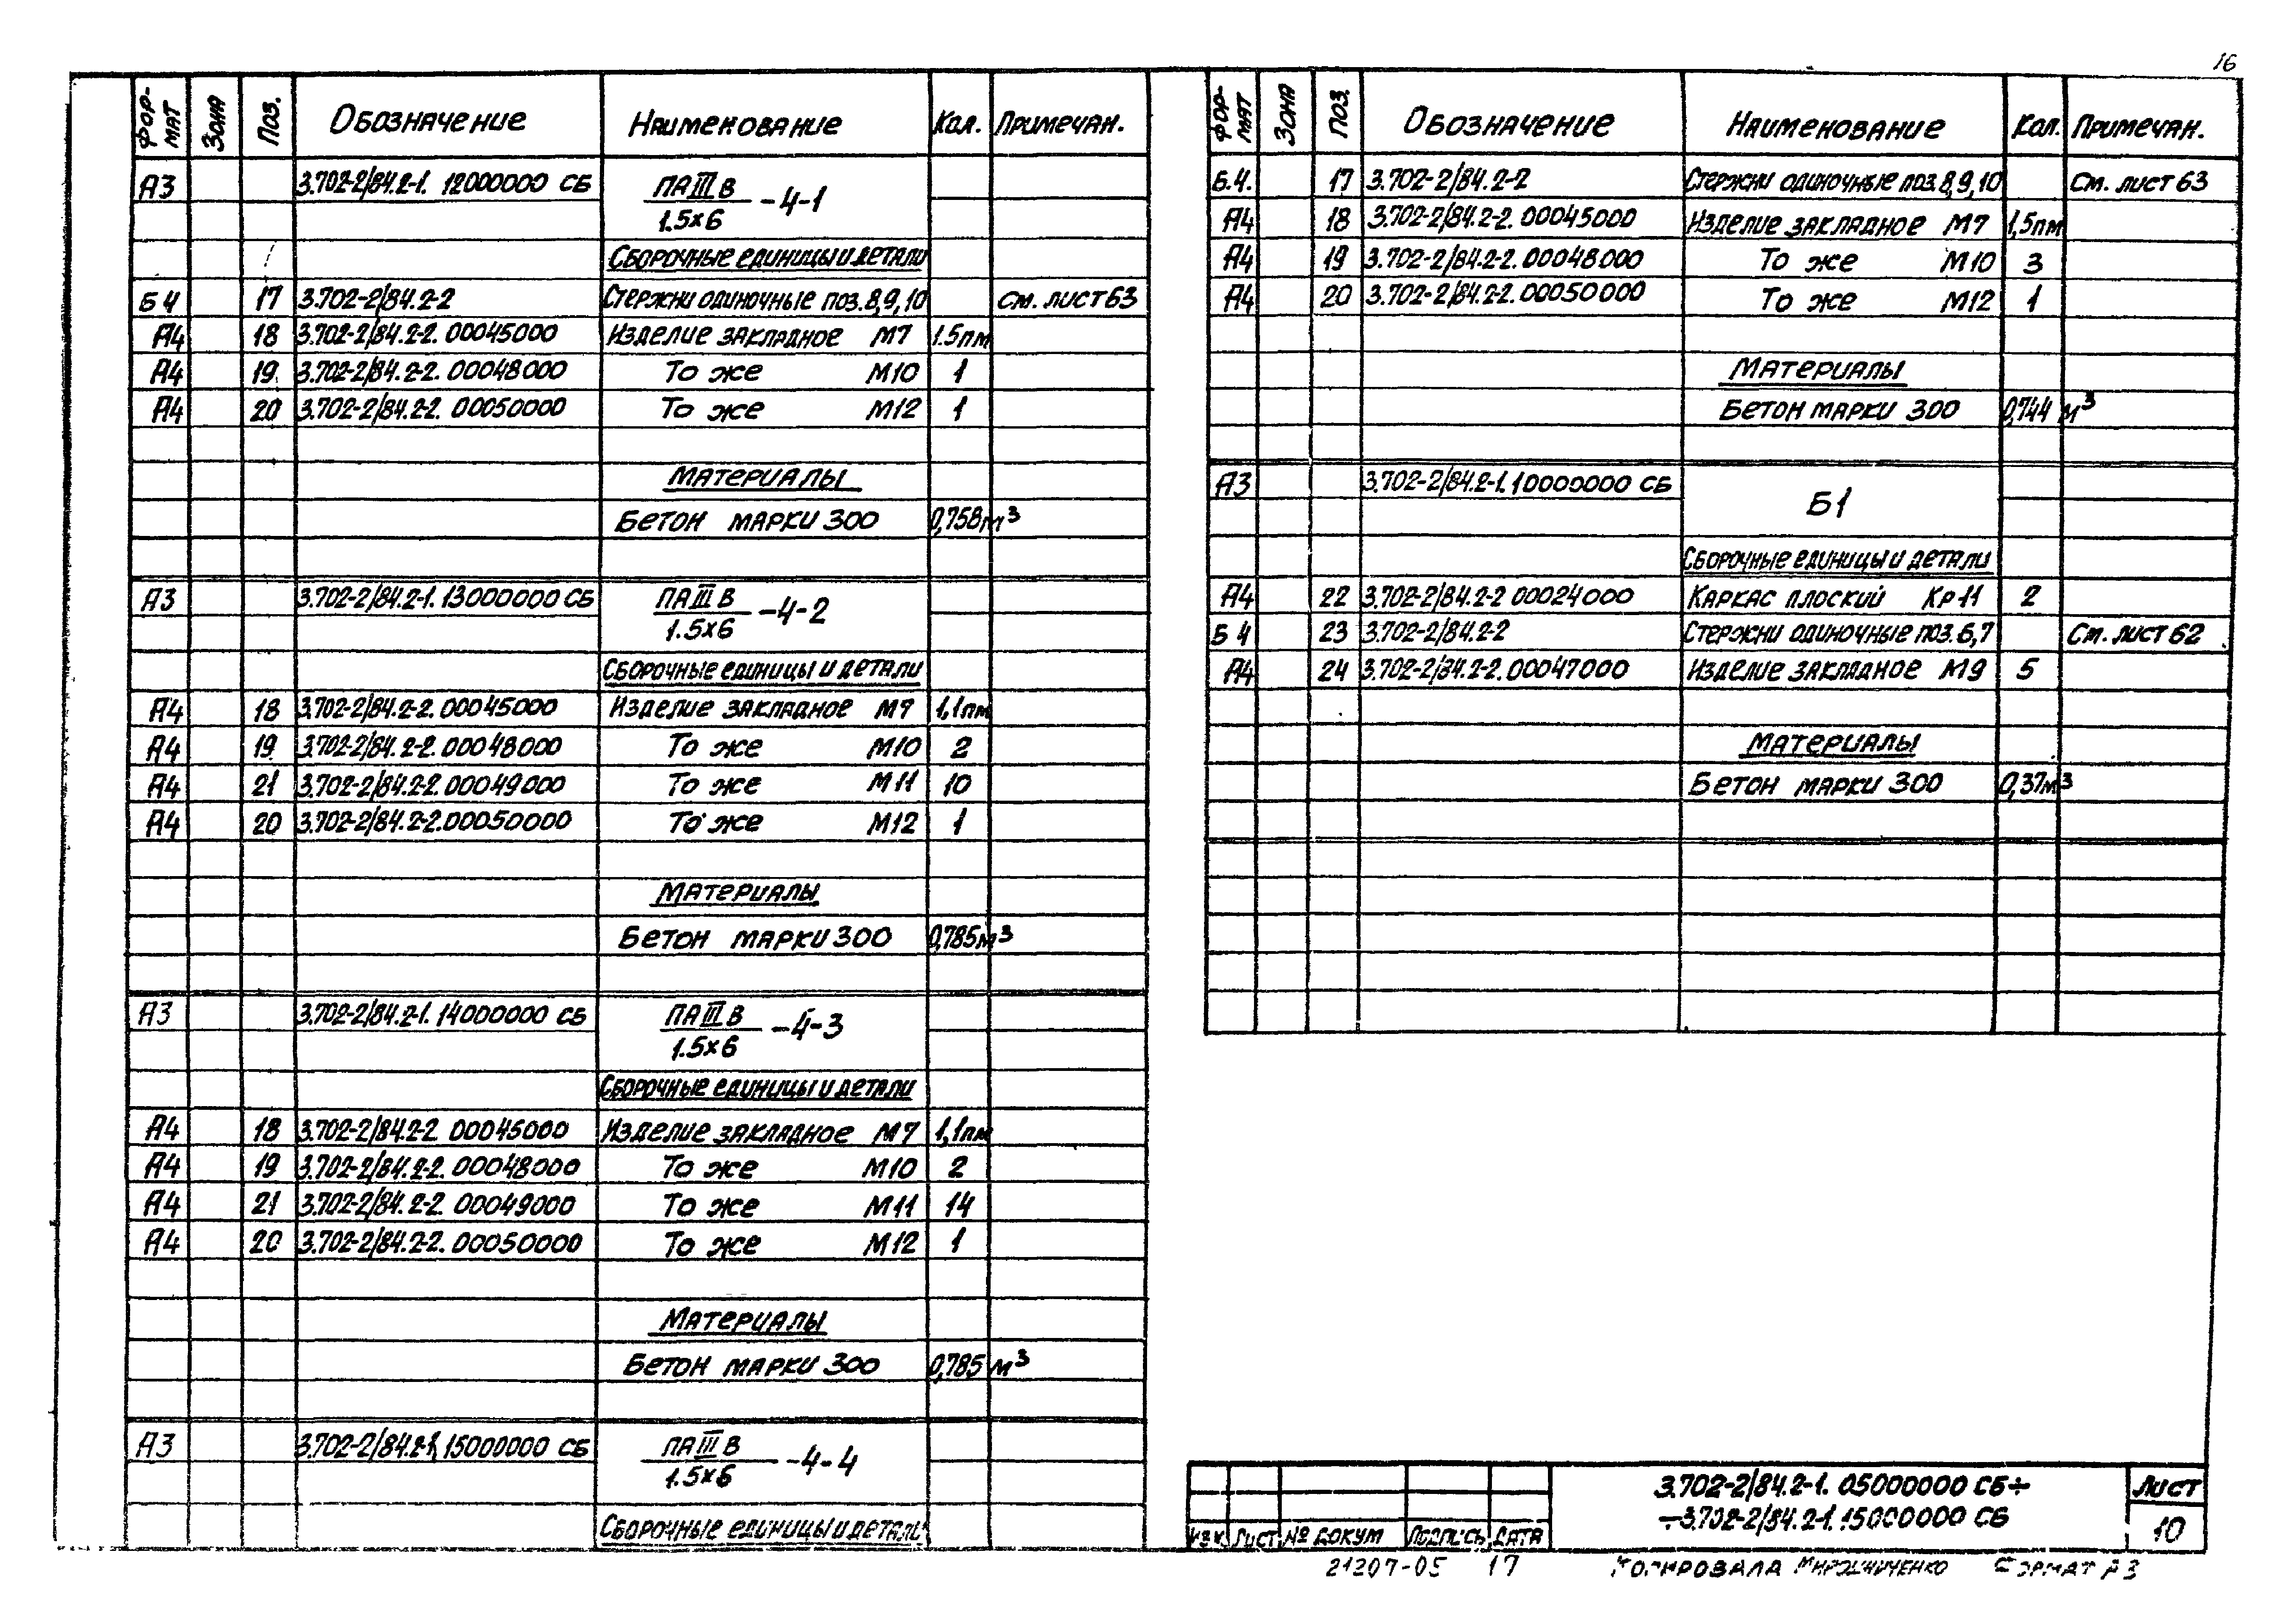 16
Формат Зона Поз. Обозначение Наименование Кол. Примечан.
А3 3.702-2/84.2-1. 12000000 СБ ПАIIIВ
1.5×6 -4-1
Сборочные единицы и детали
Б4 17 3.702-2/84.2-2 Стержни одиночные поз.8,9,10 См. лист 63
А4 18 3.702-2/84.2-2. 00045000 Изделие закладное М7 1.5пм
А4 19 3.702-2/84.2-2. 00048000 То же М10 1
А4 20 3.702-2/84.2-2. 00050000 То же М12 1
Материалы
Бетон марки 300 0,758м³
А3 3.702-2/84.2-1. 13000000 СБ ПАIIIВ
1.5×6 -4-2
Сборочные единицы и детали
А4 18 3.702-2/84.2-2. 00045000 Изделие закладное М7 1,1пм
А4 19 3.702-2/84.2-2. 00048000 То же М10 2
А4 21 3.702-2/84.2-2. 00049000 То же М11 10
А4 20 3.702-2/84.2-2. 00050000 То же М12 1
Материалы
Бетон марки 300 0,785м³
А3 3.702-2/84.2-1. 14000000 СБ ПАIIIВ
1.5×6 -4-3
Сборочные единицы и детали
А4 18 3.702-2/84.2-2. 00045000 Изделие закладное М7 1,1пм
А4 19 3.702-2/84.2-2. 00048000 То же М10 2
А4 21 3.702-2/84.2-2. 00049000 То же М11 14
А4 20 3.702-2/84.2-2. 00050000 То же М12 1
Материалы
Бетон марки 300 0,785 м³
А3 3.702-2/84.2-1. 15000000 СБ ПАIIIВ
1.5×6 -4-4
Сборочные единицы и детали
Формат Зона Поз. Обозначение Наименование Кол. Примечан.
Б.4. 17 3.702-2/84.2-2 Стержни одиночные поз.8,9,10 См. лист 63
А4 18 3.702-2/84.2-2. 00045000 Изделие закладное М7 1,5пм
А4 19 3.702-2/84.2-2. 00048000 То же М10 3
А4 20 3.702-2/84.2-2. 00050000 То же М12 1
Материалы
Бетон марки 300 0,744 м³
А3 3.702-2/84.2-1. 10000000 СБ Б1
Сборочные единицы и детали
А4 22 3.702-2/84.2-2 00024000 Каркас плоский Кр11 2
Б4 23 3.702-2/84.2-2 Стержни одиночные поз.6,7 См. лист 62
А4 24 3.702-2/84.2-2. 00047000 Изделие закладное М9 5
Материалы
Бетон марки 300 0,37м³
3.702-2/84.2-1. 05000000 СБ÷
÷3.702-2/84.2-1. 15000000 СБ
Лист
10
Изм. Лист № докум Подпись Дата
21207-05 17 Копировала Мирошниченко Формат А3